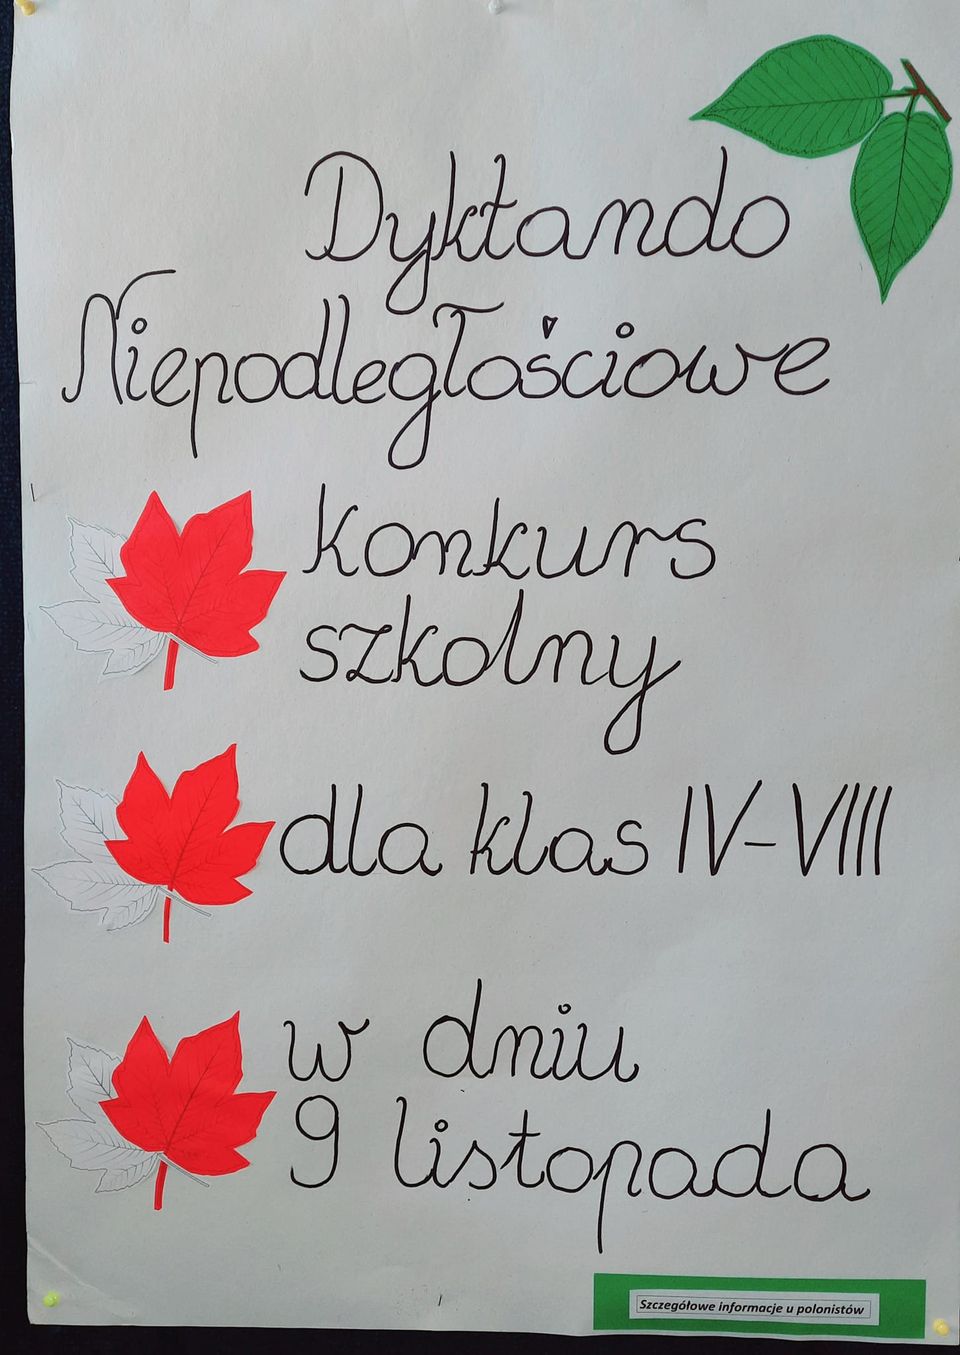 Dyktando
Niepodległościowe
konkurs
szkolny
dla klas IV-VIII
w dniu
9 listopada
Szczegółowe informacje u polonistów